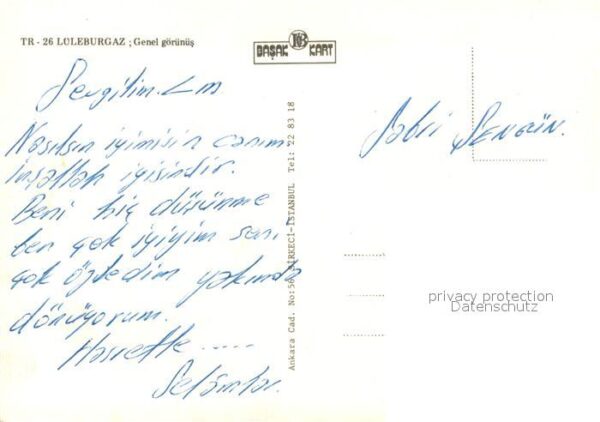 TR - 26 LÜLEBURGAZ ; Genel görünüş
BAŞAK KART
Sevgilim.
Nasılsın iyimisin canım
inşallah iyisindir.
Beni hiç düşünme
ben çok iyiyim seni
çok özledim yakında
dönüyorum.
Hasretle .....
Selâmlar.
Ankara Cad. No: SİRKECİ-İSTANBUL Tel: 22 83 18
Sabri ŞENGÜN.
privacy protection
Datenschutz